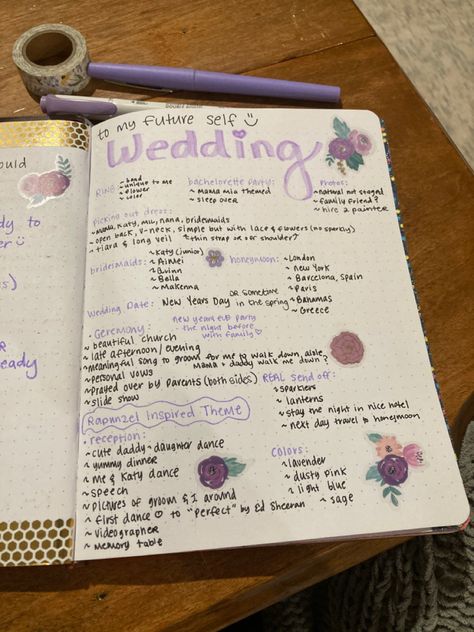 ould
dy to
s)
R
eady
to my future self
Wedding
RING:
~ band
~ unique to me
~ flower
~ color
bachelorette party:
~ mama mia themed
~ sleep over
Photos:
~ natural not staged
~ family friend?
~ hire a painter
Picking out dress:
~ Mama, Katy, MIL, nana, bridemaids
~ open back, v-neck, simple but with lace & flowers (no sparkly)
~ tiara & long veil ~ thin strap or off shoulder?
bridemaids:
~ Katy (junior)
~ Aimei
~ Quinn
~ Bella
~ Makenna
honeymoon:
~ London
~ New York
~ Barcelona, Spain
~ Paris
~ Bahamas
~ Greece
Wedding Date: New Years Day OR sometime in the spring
Ceremony:
new years eve party
- the night before
with family
~ beautiful church
~ late afternoon/evening
~ meaningful song to groom for me to walk down aisle
~ personal vows
Mama + daddy walk me down?
~ prayed over by parents (both sides)
~ slide show
REAL send off:
~ sparklers
~ lanterns
~ stay the night in nice hotel
~ next day travel to honeymoon
Rapunzel Inspired Theme
reception:
~ cute daddy-daughter dance
~ yummy dinner
~ me & Katy dance
~ speech
~ pictures of groom & I around
~ first dance to "Perfect" by Ed Sheeran
~ videographer
~ memory table
Colors:
~ lavender
~ dusty pink
~ light blue
~ sage